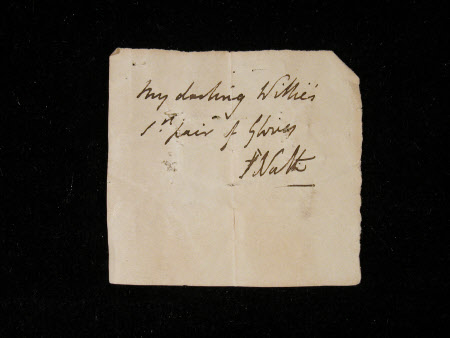 My darling Willie's
1st pair of Gloves